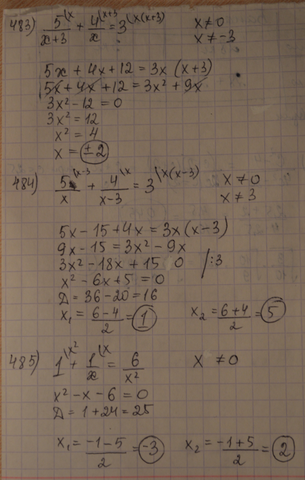 483) 5\x/(x+3) + 4\x+3/x = 3\x(x+3)   x ≠ 0
x ≠ -3
5x + 4x + 12 = 3x (x+3)
5x + 4x + 12 = 3x² + 9x
3x² - 12 = 0
3x² = 12
x² = 4
x = ±2
484) 5\x-3/x + 4\x/(x-3) = 3\x(x-3)   x ≠ 0
x ≠ 3
5x - 15 + 4x = 3x (x-3)
9x - 15 = 3x² - 9x
3x² - 18x + 15 0 /:3
x² - 6x + 5 = 0
D = 36 - 20 = 16
x₁ = (6-4)/2 = 1   x₂ = (6+4)/2 = 5
485) 1\x² + 1\x/x = 6/x²   x ≠ 0
x² - x - 6 = 0
D = 1 + 24 = 25
x₁ = (-1-5)/2 = -3   x₂ = (-1+5)/2 = 2